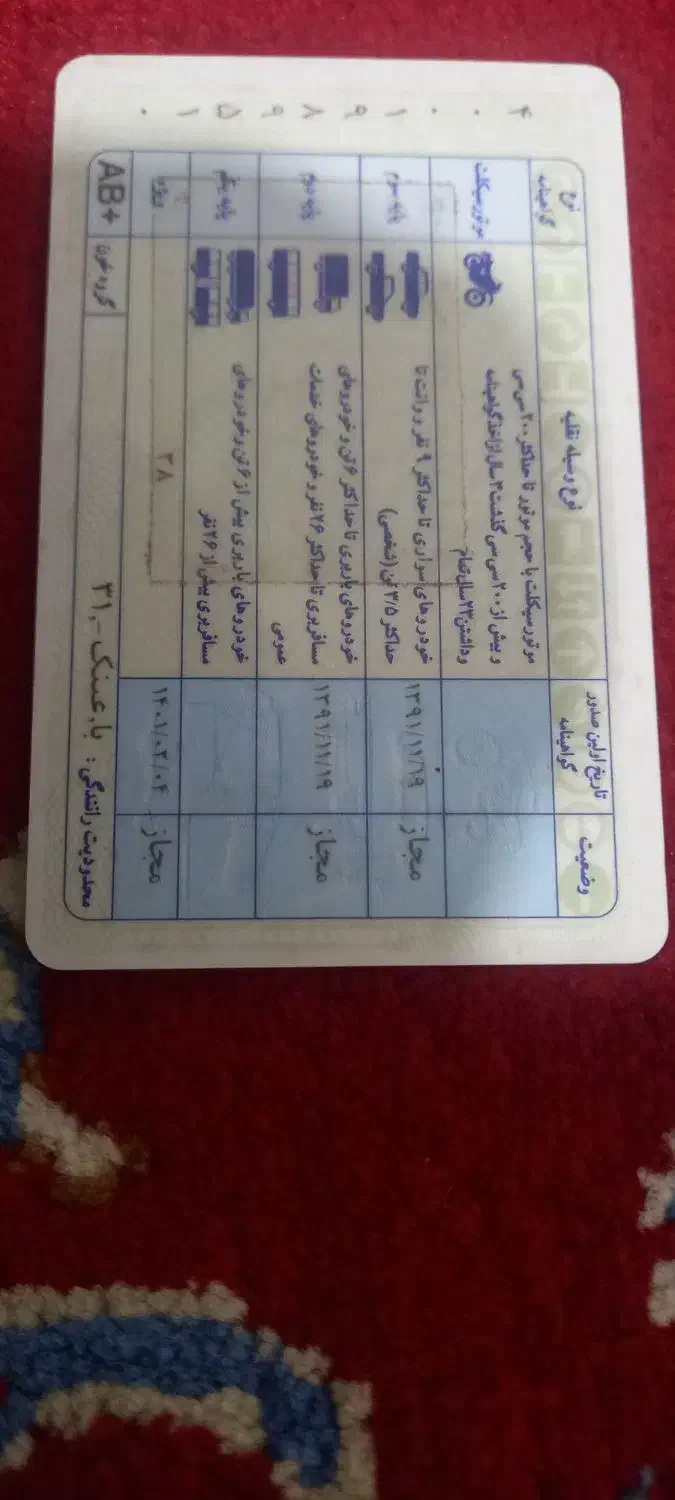 ۴۰۰۱۹۸۹۵۱۰
نوع گواهینامه
نوع وسیله نقلیه
تاریخ اولین صدور گواهینامه
وضعیت
موتورسیکلت
موتورسیکلت با حجم موتور تا حداکثر ۲۰۰ سی سی
و بیش از ۲۰۰ سی سی گذشت ۲ سال از اخذ گواهینامه
و داشتن ۲۳ سال تمام
پایه سوم
خودروهای سواری تا حداکثر ۹ نفر و وانت تا
حداکثر ۳/۵ تن (شخصی)
۱۳۹۱/۱۱/۱۹
مجاز
پایه دوم
خودروهای باربری تا حداکثر ۶ تن و خودروهای
مسافربری تا حداکثر ۲۶ نفر و خودروهای خدمات
عمومی
۱۳۹۱/۱۱/۱۹
مجاز
پایه یکم
خودروهای باربری بیش از ۶ تن و خودروهای
مسافربری بیش از ۲۶ نفر
ویژه
۳۸
۱۴۰۱/۰۳/۰۴
مجاز
AB+
گروه خون
محدودیت رانندگی: با.عینک-.۳۱